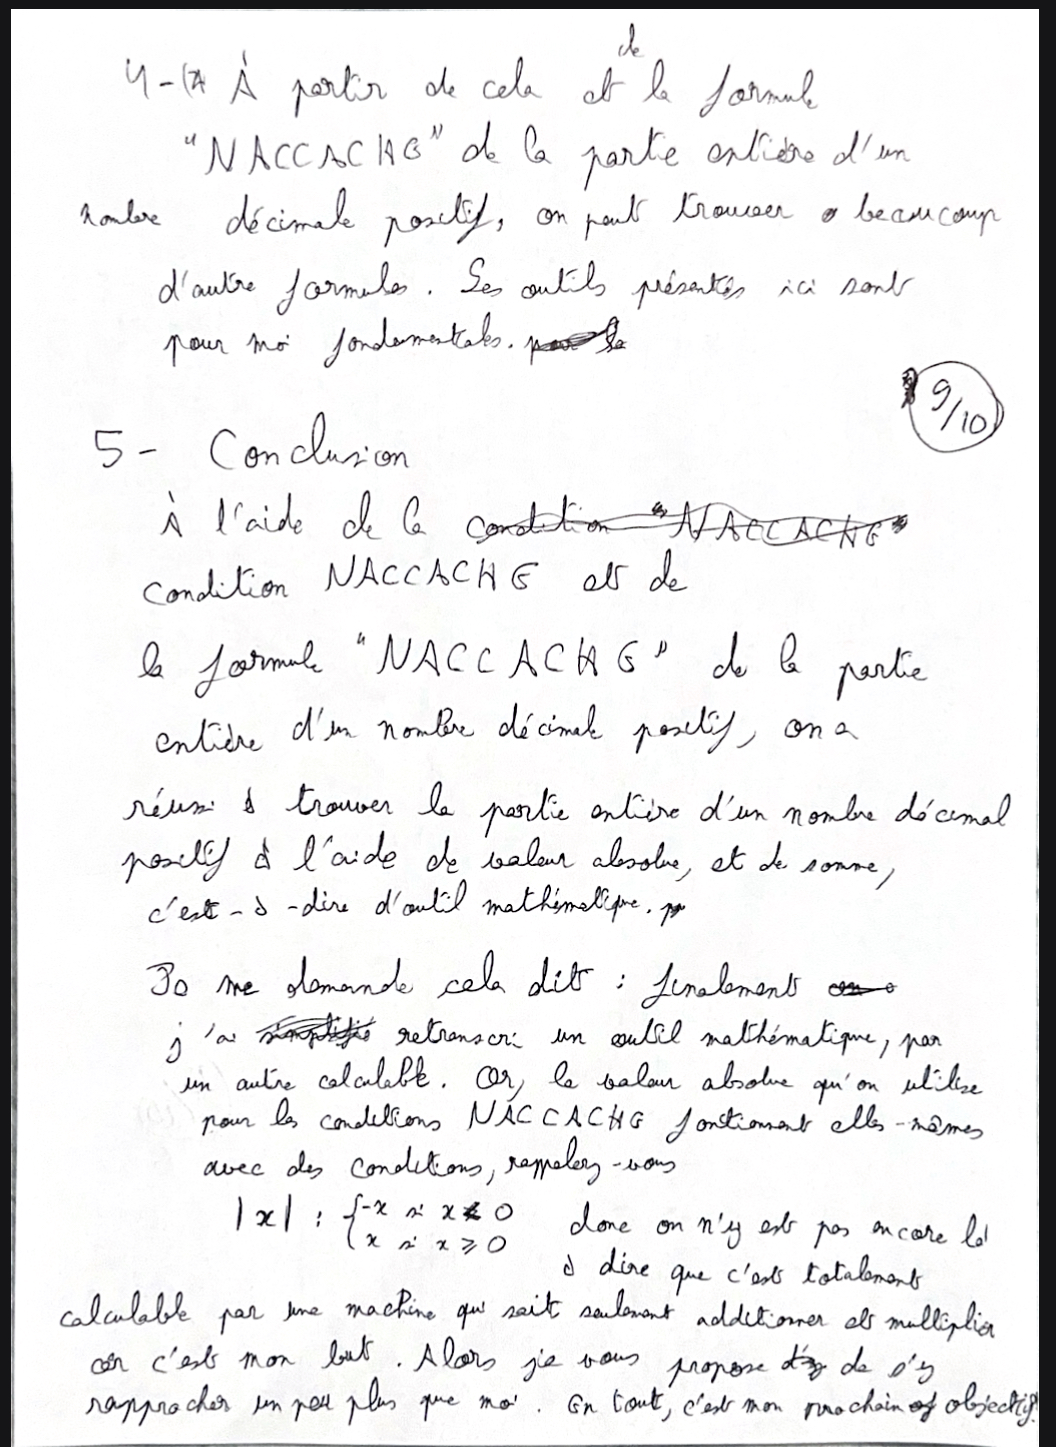 de
4-(7) À partir de cela et la formule
"NACCACHE" de la partie entière d'un
nombre décimale positif, on peut trouver beaucoup
d'autre formules. Les outils présentés ici sont
pour moi fondamentales.
9/10
5- Conclusion
À l'aide de la condition "NACCACHE"
condition NACCACHE et de
la formule "NACCACHE" de la partie
entière d'un nombre décimale positif, on a
réussi à trouver la partie entière d'un nombre décimal
positif à l'aide de valeur absolue, et de somme,
c'est-à-dire d'outil mathématique.
Je me demande cela dit : finalement
j'ai simplifié retranscri un outil mathématique, par
un autre calculable. Or, la valeur absolue qu'on utilise
pour les conditions NACCACHE fonctionnent elles-mêmes
avec des conditions, rappelez-vous
|x| : { -x si x < 0 donc on n'y est pas encore là
x si x ⩾ 0 à dire que c'est totalement
calculable par une machine qui sait seulement additionner et multiplier
car c'est mon but. Alors je vous propose de s'y
rapprocher un peu plus que moi. En tout, c'est mon prochain objectif.